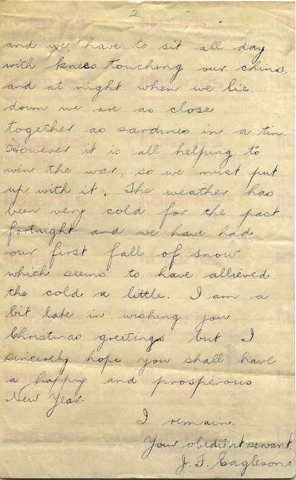 2
and we have to sit all day
with knees touching our chins,
and at night when we lie
down we are as close
together as sardines in a tin.
However it is all helping to
win the war, so we must put
up with it. The weather has
been very cold for the past
fortnight and we have had
our first fall of snow
which seems to have allieved
the cold a little. I am a
bit late in wishing you
Christmas greetings but I
sincerely hope you shall have
a happy and prosperous
New Year.
I remain
Your obedient servant,
J. F. Eagleson